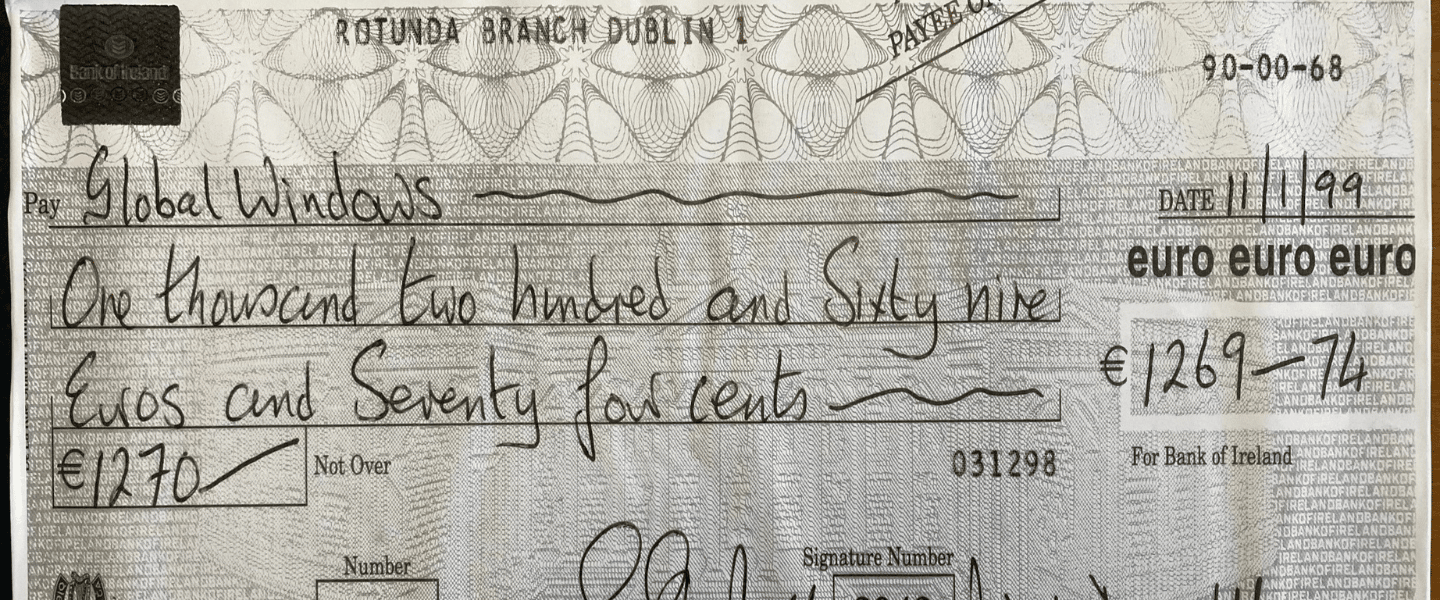 Bank of Ireland
ROTUNDA BRANCH DUBLIN 1
PAYEE
90-00-68
Pay Global Windows
DATE 11/1/99
One thousand two hundred and Sixty nine
euro euro euro
Euros and Seventy four cents
€1269-74
€1270
Not Over
031298
For Bank of Ireland
Number
Signature Number